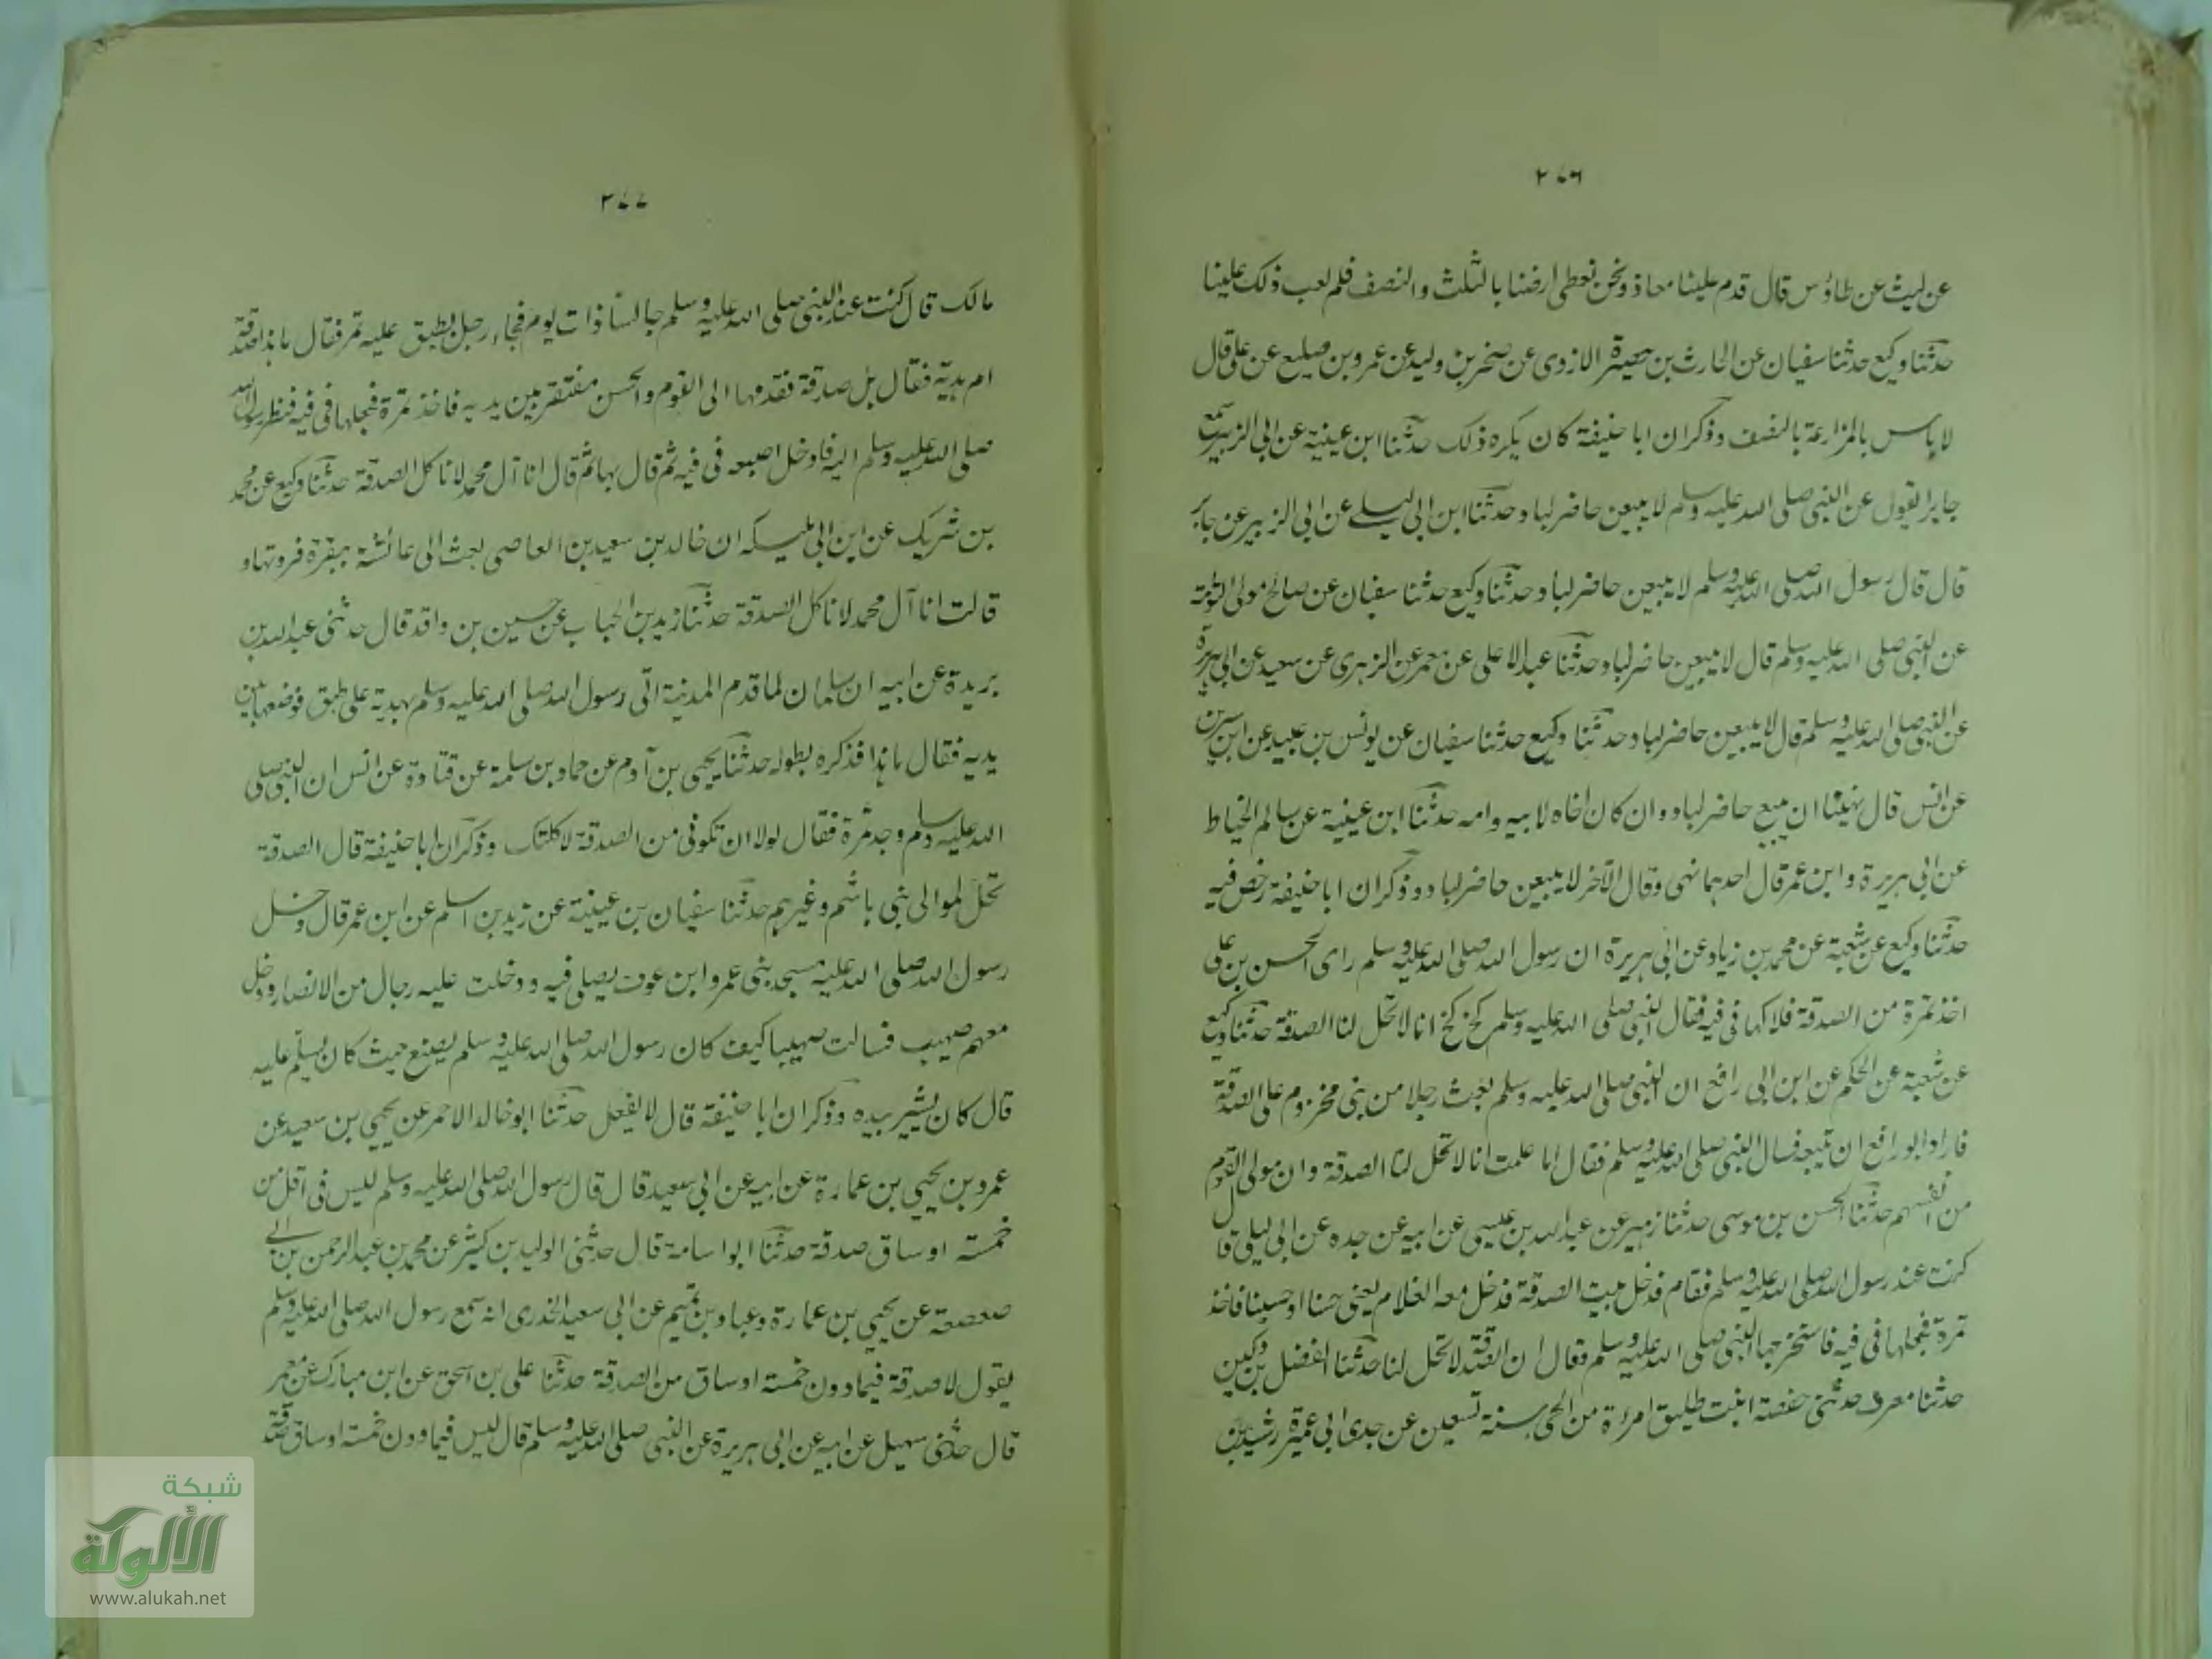 ٢٧٦
عن ليث عن طاؤس قال قدم علينا معاذ ونحن نعطى ارضنا بالثلث والنصف فلم يعب ذلك علينا
حدثنا وكيع حدثنا سفيان عن الحارث بن حصيرة الازدى عن صخر بن وليد عن عمرو بن صليع عن على قال
لا باس بالمزارعة بالنصف وذكر ان ابا حنيفة كان يكره ذلك حدثنا ابن عيينة عن ابى الزبير سمع
جابرا يقول عن النبى صلى الله عليه وسلم لا يبيعن حاضر لباد وحدثنا ابن ابى ليلے عن ابى الزبير عن جابر
قال قال رسول الله صلى الله عليه وسلم لا يبيعن حاضر لباد وحدثنا وكيع حدثنا سفيان عن صالح مولى التوئمة
عن النبى صلى الله عليه وسلم قال لا يبيعن حاضر لباد وحدثنا عبد الاعلى عن معمر عن الزهرى عن سعيد عن ابى هريرة
عن النبى صلى الله عليه وسلم قال لا يبيعن حاضر لباد حدثنا وكيع حدثنا سفيان عن يونس بن عبيد عن ابن سيرين
عن انس قال نهينا ان يبيع حاضر لباد وان كان اخاه لابيه وامه حدثنا ابن عيينة عن سالم الخياط
عن ابى هريرة وابن عمر قال احدهما نهى وقال الآخر لا يبيعن حاضر لباد وذكر ان ابا حنيفة رخص فيه
حدثنا وكيع عن شعبة عن محمد بن زياد عن ابى هريرة ان رسول الله صلى الله عليه وسلم راى الحسن بن على
اخذ تمرة من الصدقة فلاكها فى فيه فقال النبى صلى الله عليه وسلم كخ كخ انا لا تحل لنا الصدقة حدثنا وكيع
عن شعبة عن الحكم عن ابن ابى رافع ان النبى صلى الله عليه وسلم بعث رجلا من بنى مخزوم على الصدقة
فاراد ابو رافع ان يتبعه فسال النبى صلى الله عليه وسلم فقال اما علمت انا لا تحل لنا الصدقة وان مولى القوم
من انفسهم حدثنا الحسن بن موسى حدثنا زهير عن عبد الله بن عيسى عن ابيه عن جده عن ابى ليلى قال
كنت عند رسول الله صلى الله عليه وسلم فقام فدخل بيت الصدقة فدخل معه الغلام يعنى حسنا او حسينا فاخذ
تمرة فجعلها فى فيه فاستخرجها النبى صلى الله عليه وسلم وقال ان الصدقة لا تحل لنا حدثنا الفضل بن دكين
حدثنا معرف حدثتنى حفصة ابنت طليق امرءة من الحى سنة تسعين عن جدى ابى عميرة رشيد بن
٢٧٧
مالك قال كنت عند النبى صلى الله عليه وسلم جالسا ذات يوم فجاء رجل بطبق عليه تمر فقال ما هذا صدقة
ام هدية فقال بل صدقة فقدمها الى القوم والحسن متعفر بين يديه فاخذ تمرة فجعلها فى فيه فنظر رسول الله
صلى الله عليه وسلم اليه فادخل اصبعه فى فيه ثم قال بها ثم قال انا آل محمد لا ناكل الصدقة حدثنا وكيع عن محمد
بن شريك عن ابن ابى مليكه ان خالد بن سعيد بن العاصى بعث الى عائشة ببقرة فردتها و
قالت انا آل محمد لا ناكل الصدقة حدثنا زيد بن الحباب عن حسين بن واقد قال حدثنى عبد الله بن
بريدة عن ابيه ان سلمان لما قدم المدينة اتى رسول الله صلى الله عليه وسلم بهدية على طبق فوضعها بين
يديه فقال ما هذا فذكره بطوله حدثنا يحيى بن آدم عن حماد بن سلمة عن قتادة عن انس ان النبى صلى
الله عليه وسلم وجد تمرة فقال لولا ان تكونى من الصدقة لاكلتك وذكر ان ابا حنيفة قال الصدقة
تحل لموالى بنى هاشم وغيرهم حدثنا سفيان بن عيينة عن زيد بن اسلم عن ابن عمر قال دخل
رسول الله صلى الله عليه مسجد بنى عمرو ابن عوف يصلى فيه ودخلت عليه رجال من الانصار ودخل
معهم صهيب فسالت صهيبا كيف كان رسول الله صلى الله عليه وسلم يصنع حيث كان يسلم عليه
قال كان يشير بيده وذكر ان ابا حنيفة قال لا يفعل حدثنا ابو خالد الاحمر عن يحيى بن سعيد عن
عمرو بن يحيى بن عمارة عن ابيه عن ابى سعيد قال قال رسول الله صلى الله عليه وسلم ليس فى اقل من
خمسة اوساق صدقة حدثنا ابو اسامة قال حدثنى الوليد بن كثير عن محمد بن عبد الرحمن بن ابى
صعصعة عن يحيى بن عمارة وعباد بن تميم عن ابى سعيد الخدرى انه سمع رسول الله صلى الله عليه وسلم
يقول لا صدقة فيما دون خمسة اوساق من الصدقة حدثنا على بن اسحق عن ابن مبارك عن معمر
قال حدثنى سهيل عن ابيه عن ابى هريرة عن النبى صلى الله عليه وسلم قال ليس فيما دون خمسة اوساق صدقة
شبكة
الألوكة
www.alukah.net